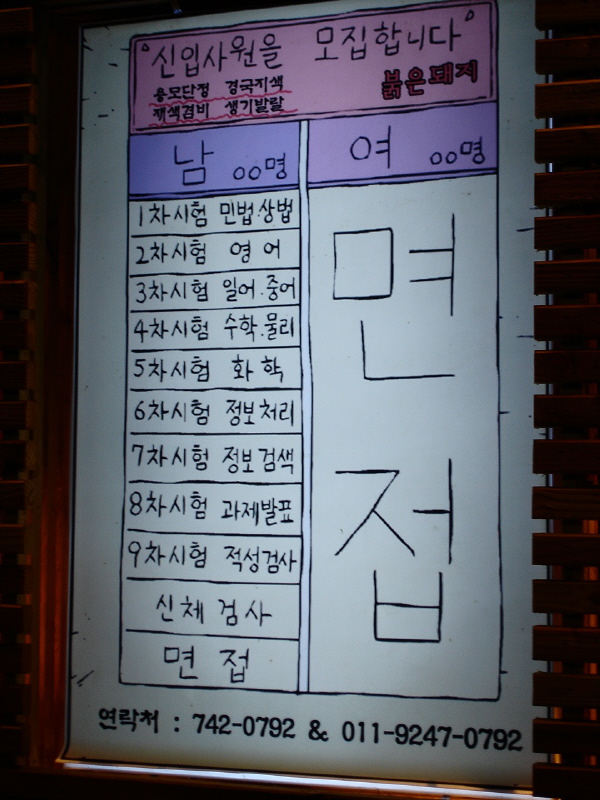 "신입사원을 모집합니다"
용모단정 경국지색
재색겸비 생기발랄
붉은돼지
남 00명
여 00명
1차시험 민법.상법
2차시험 영어
3차시험 일어.중어
4차시험 수학.물리
5차시험 화학
6차시험 정보처리
7차시험 정보검색
8차시험 과제발표
9차시험 적성검사
신체검사
면접
면접
연락처 : 742-0792 & 011-9247-0792